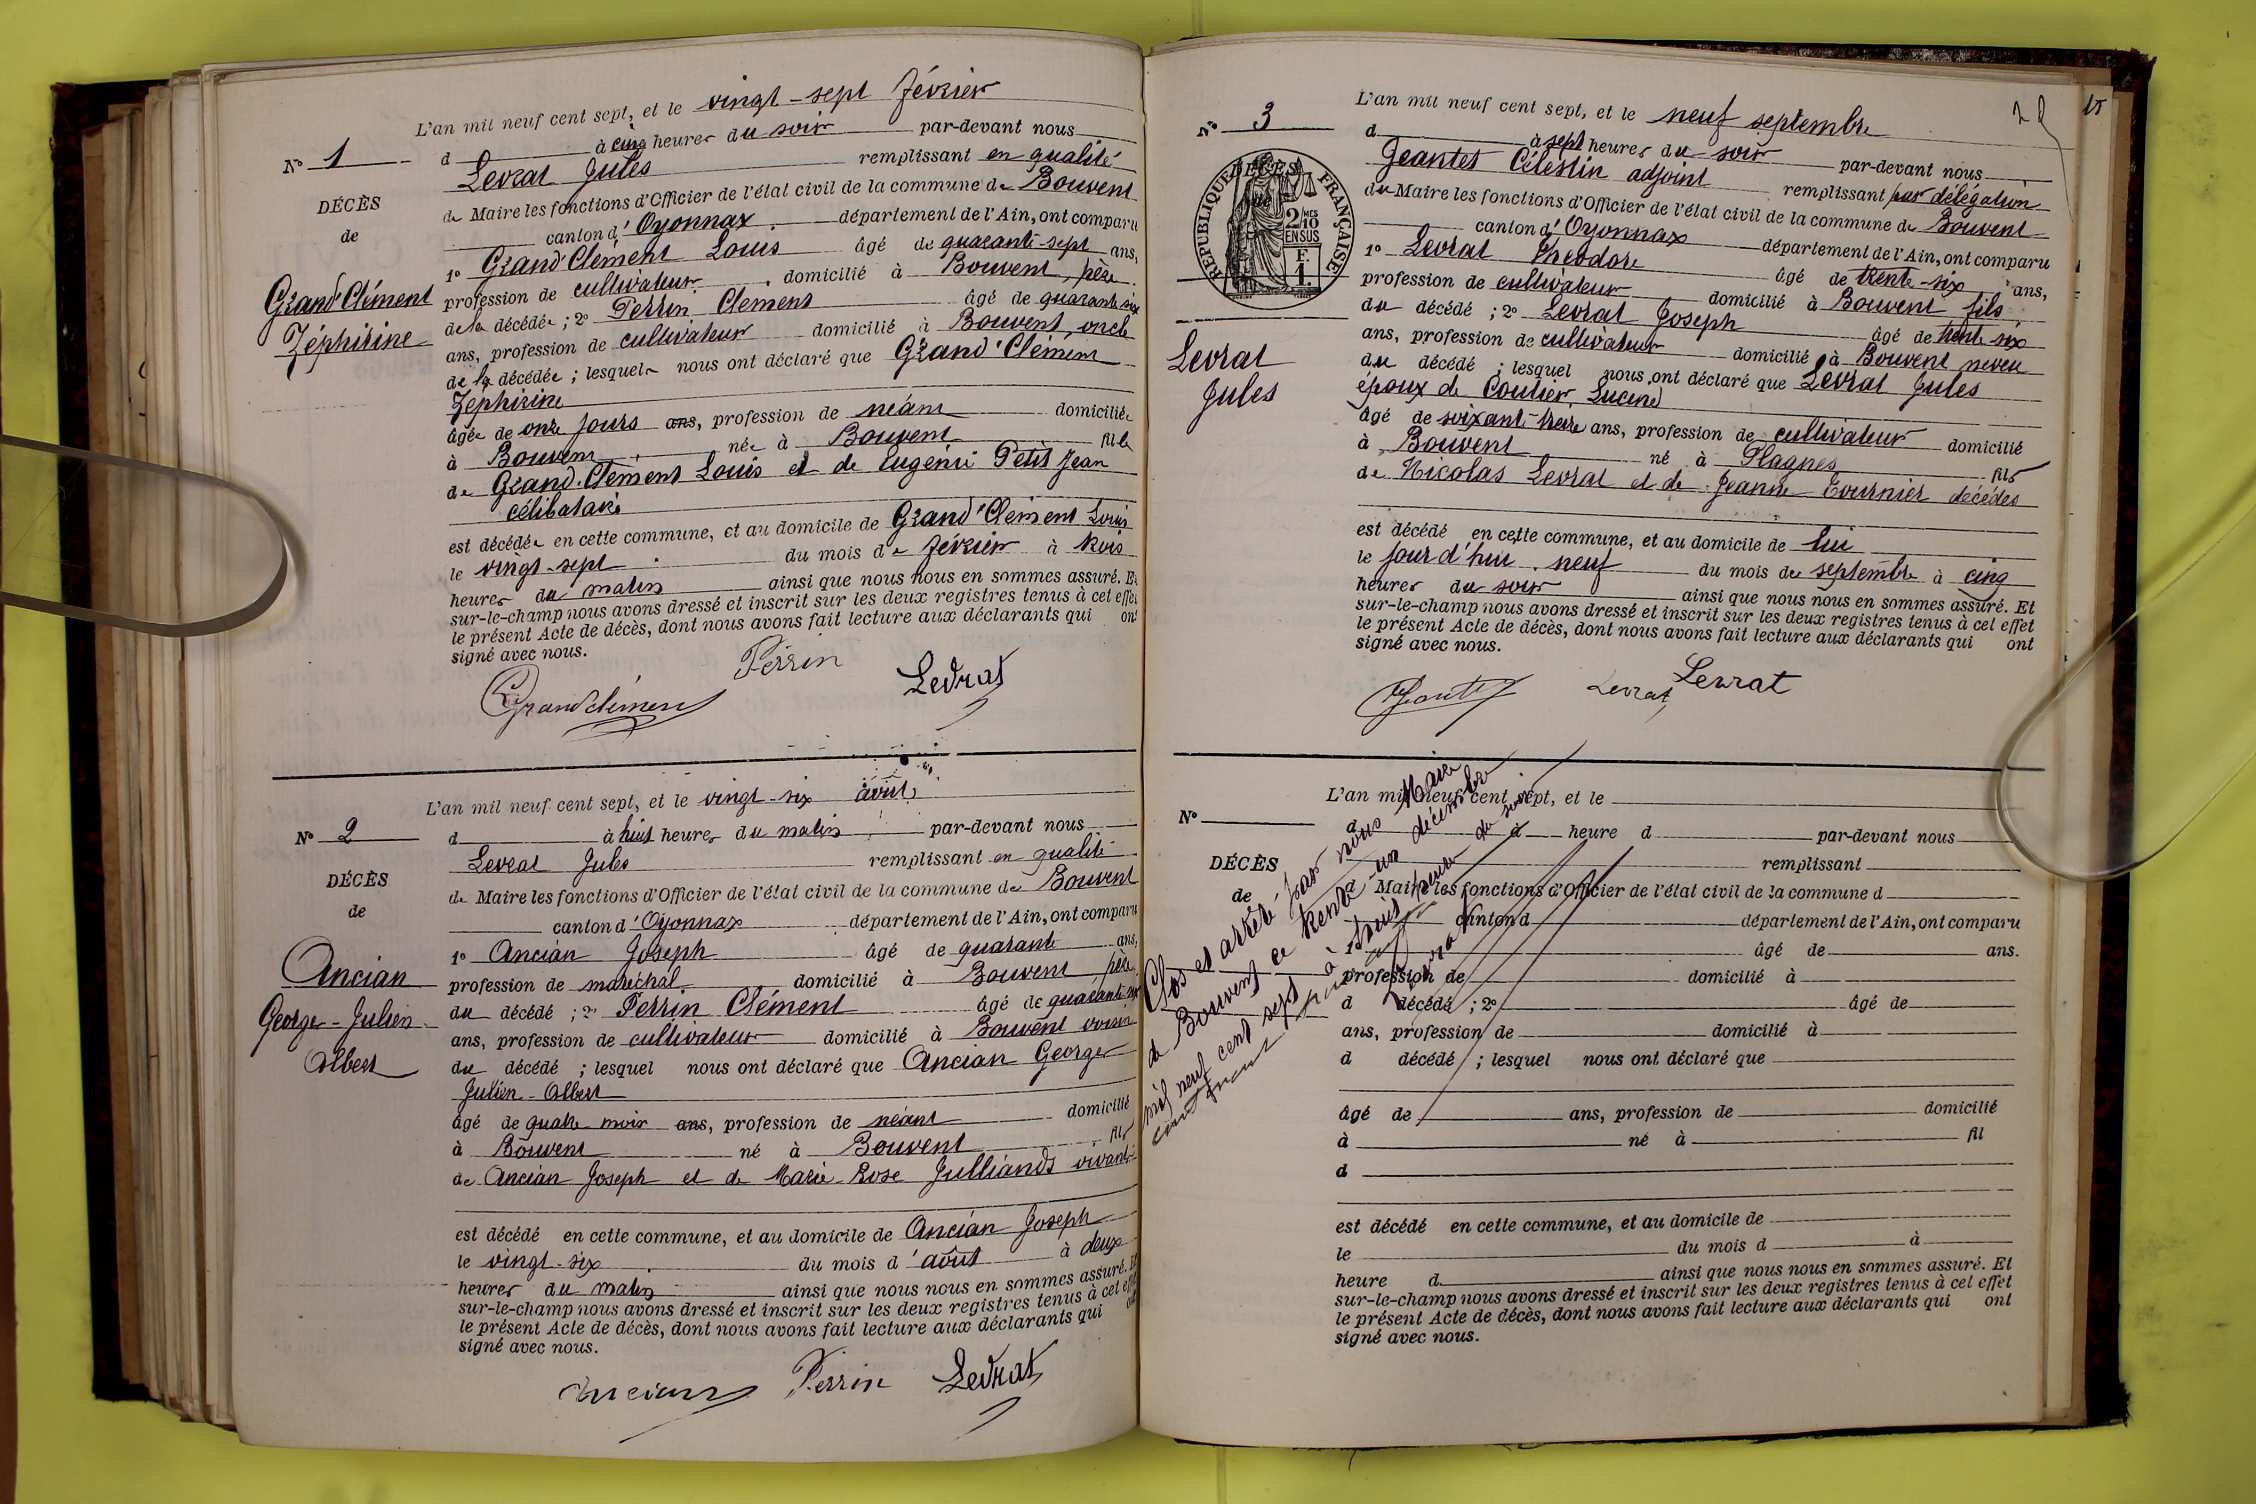 L'an mil neuf cent sept, et le vingt-sept février
N° 1
d à cinq heures du soir par-devant nous
Levrat Jules remplissant en qualité
DÉCÈS
de Maire les fonctions d'Officier de l'état civil de la commune de Bouvent
de
canton d'Oyonnax département de l'Ain, ont comparu
1° Grand'Clément Louis âgé de quarante-sept ans,
Grand'Clément
profession de cultivateur domicilié à Bouvent, père
Zéphirine
de la décédée ; 2° Perrin Clément âgé de quarante six
ans, profession de cultivateur domicilié à Bouvent, oncle
de la décédée ; lesquels nous ont déclaré que Grand'Clément
Zéphirine
âgée de onze jours ans, profession de néant domiciliée
à Bouvent née à Bouvent fille
de Grand-Clément Louis et de Eugénie Petit Jean
célibataire
est décédée en cette commune, et au domicile de Grand'Clément Louis
le vingt-sept du mois de février à trois
heures du matin ainsi que nous nous en sommes assuré. Et
sur-le-champ nous avons dressé et inscrit sur les deux registres tenus à cet effet
le présent Acte de décès, dont nous avons fait lecture aux déclarants qui ont
signé avec nous.
Grandclément Perrin Levrat
L'an mil neuf cent sept, et le vingt-six août
N° 2
d à huit heures du matin par-devant nous
Levrat Jules remplissant en qualité
DÉCÈS
de Maire les fonctions d'Officier de l'état civil de la commune de Bouvent
de
canton d'Oyonnax département de l'Ain, ont comparu
1° Ancian Joseph âgé de quarante ans,
Ancian
profession de maréchal domicilié à Bouvent père
George-Julien
du décédé ; 2° Perrin Clément âgé de quarante-six
ans, profession de cultivateur domicilié à Bouvent voisin
Albert
du décédé ; lesquel nous ont déclaré que Ancian George
Julien-Albert
âgé de quatre mois ans, profession de néant domicilié
à Bouvent né à Bouvent fils
de Ancian Joseph et de Marie-Rose Julliands vivants
est décédé en cette commune, et au domicile de Ancian Joseph
le vingt-six du mois d'août à deux
heures du matin ainsi que nous nous en sommes assuré. Et
sur-le-champ nous avons dressé et inscrit sur les deux registres tenus à cet effet
le présent Acte de décès, dont nous avons fait lecture aux déclarants qui ont
signé avec nous.
Ancian Perrin Levrat
15
L'an mil neuf cent sept, et le neuf septembre
N° 3
d à sept heures du soir par-devant nous
Jeantet Célestin adjoint remplissant par délégation
DÉCÈS
de
RÉPUBLIQUE FRANÇAISE
2/10 MES
EN SUS
F.
1.
du Maire les fonctions d'Officier de l'état civil de la commune de Bouvent
canton d'Oyonnax département de l'Ain, ont comparu
1° Levrat Théodore âgé de trente-six ans,
profession de cultivateur domicilié à Bouvent fils
du décédé ; 2° Levrat Joseph âgé de trente six
ans, profession de cultivateur domicilié à Bouvent neveu
Levrat
du décédé ; lesquel nous ont déclaré que Levrat Jules
Jules
époux de Coutier Lucine
âgé de soixante-treize ans, profession de cultivateur domicilié
à Bouvent né à Plagnes fils
de Nicolas Levrat et de Jeanne Tournier décédés
est décédé en cette commune, et au domicile de lui
le jour d'hui neuf du mois de septembre à cinq
heures du soir ainsi que nous nous en sommes assuré. Et
sur-le-champ nous avons dressé et inscrit sur les deux registres tenus à cet effet
le présent Acte de décès, dont nous avons fait lecture aux déclarants qui ont
signé avec nous.
Jeantet Levrat Levrat
L'an mil neuf cent sept, et le
N°
d à heure d par-devant nous
remplissant
DÉCÈS
Maire les fonctions d'Officier de l'état civil de la commune d
de
canton d département de l'Ain, ont comparu
1° âgé de ans.
profession de domicilié à
d décédé ; 2° âgé de
ans, profession de domicilié à
d décédé ; lesquel nous ont déclaré que
âgé de ans, profession de domicilié
à né à fil
d
est décédé en cette commune, et au domicile de
le du mois d à
heure d ainsi que nous nous en sommes assuré. Et
sur-le-champ nous avons dressé et inscrit sur les deux registres tenus à cet effet
le présent Acte de décès, dont nous avons fait lecture aux déclarants qui ont
signé avec nous.
Clos et arrêté par nous Maire
de Bouvent ce trente-un décembre
mil neuf cent sept à trois heures du soir
Levrat